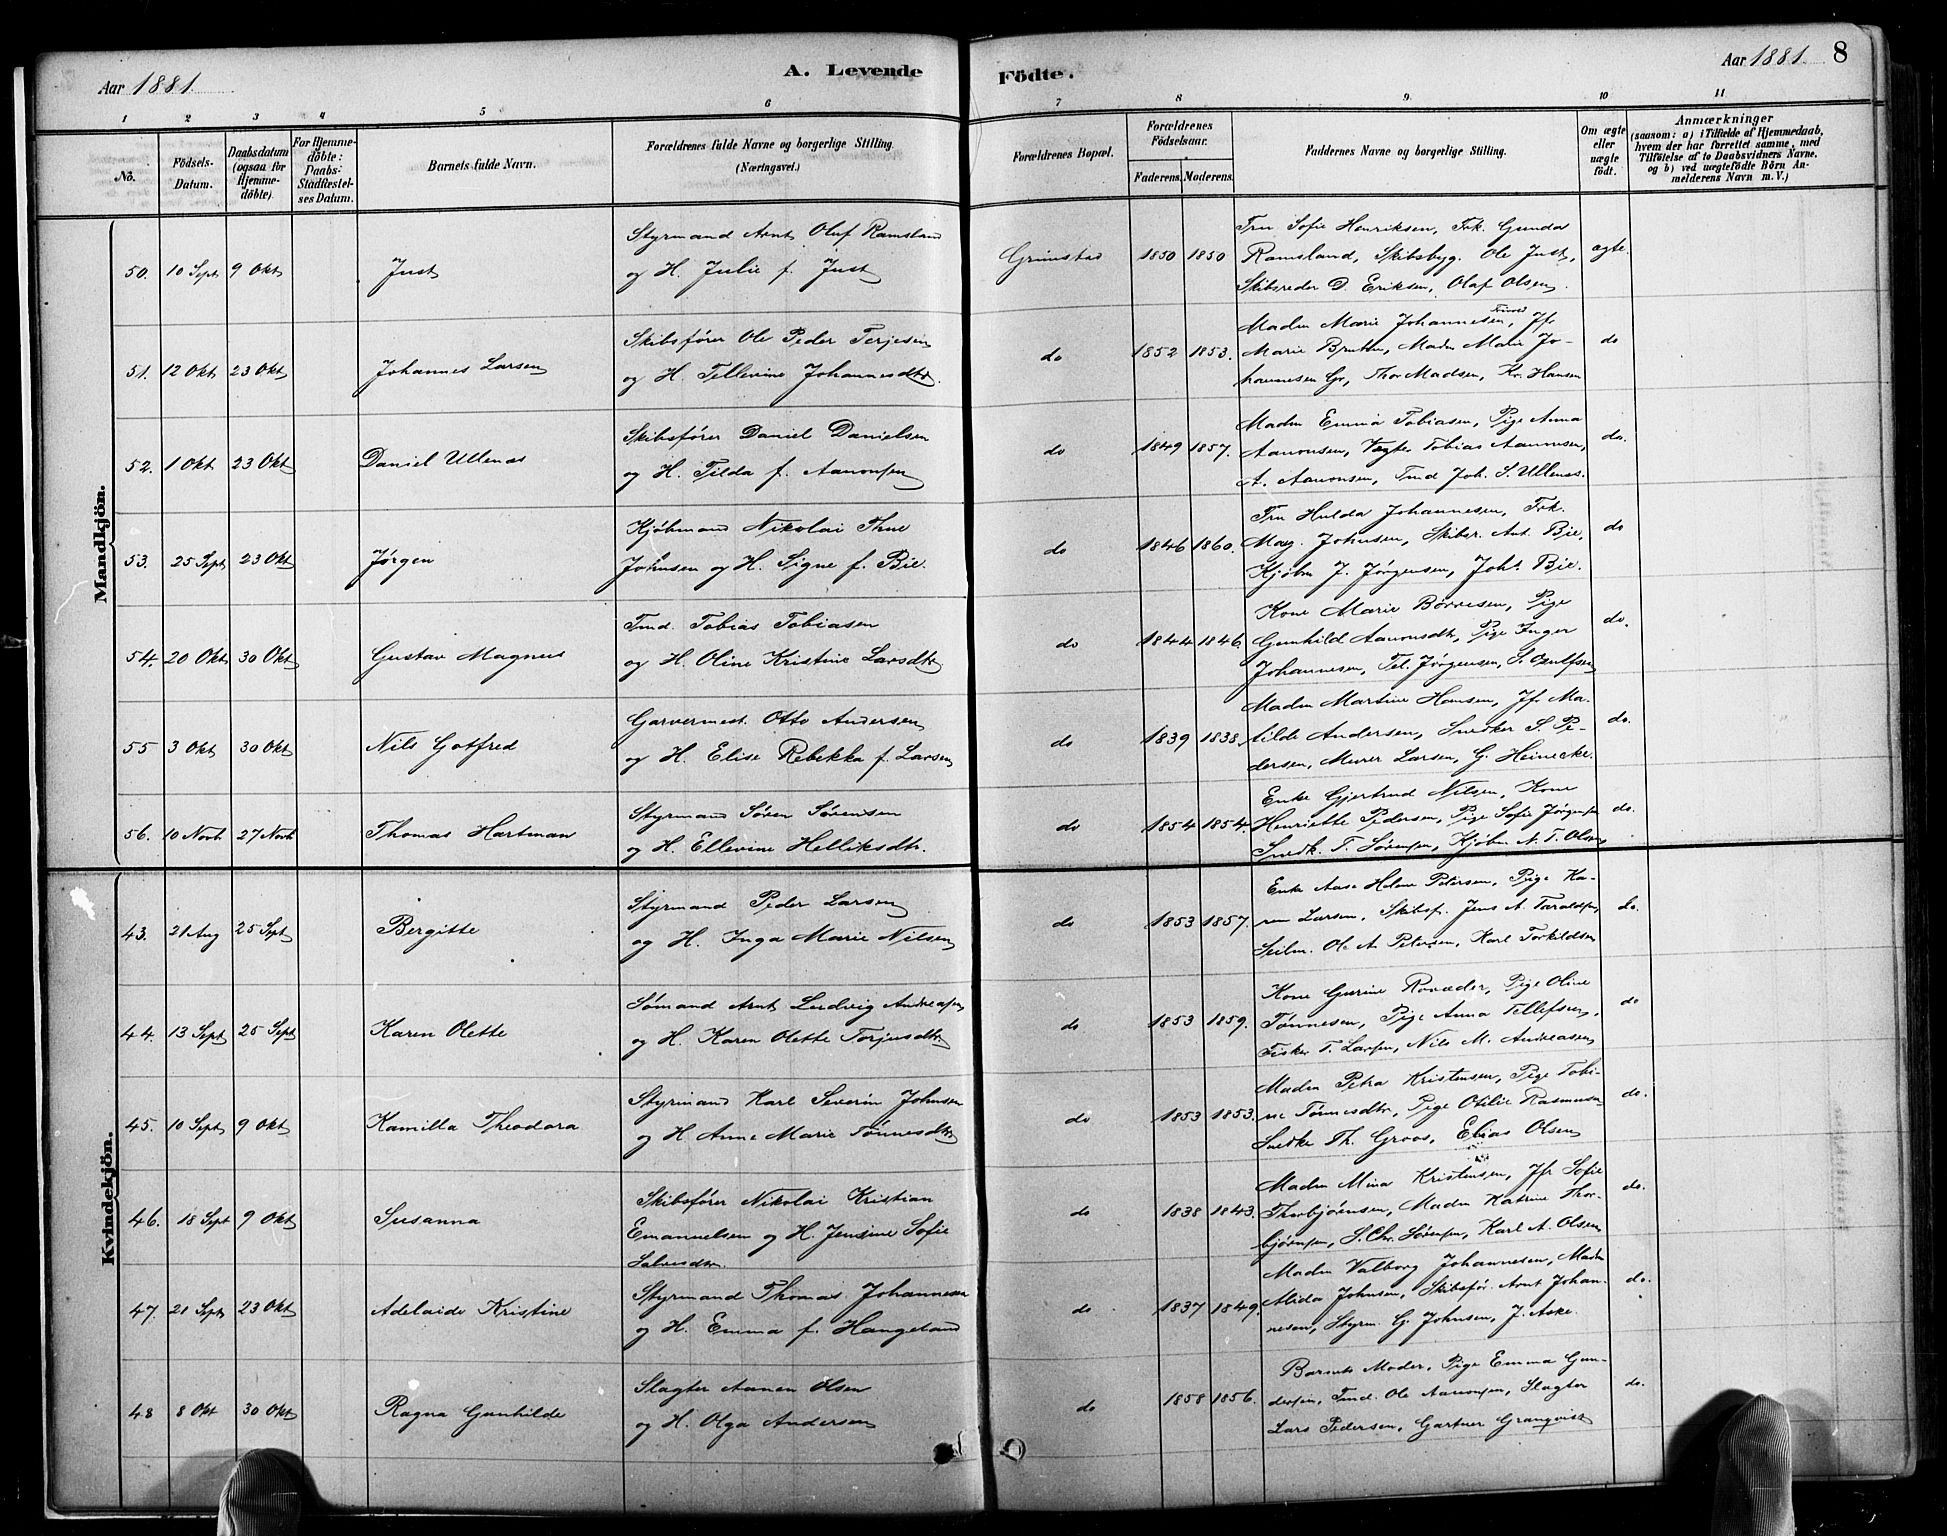 Aar 1881.
A. Levende Födte.
Aar 1881. 8
1 2 3 4 5 6 7 8 9 10 11
No.
Födsels-Datum.
Daabsdatum (ogsaa for Hjemme-döbte).
For Hjemme-döbte: Daabs-Stadfæstel-ses Datum.
Barnets fulde Navn.
Forældrenes fulde Navne og borgerlige Stilling. (Næringsvei.)
Forældrenes Bopæl.
Forældrenes Födselsaar.
Faderens. Moderens.
Faddernes Navne og borgerlige Stilling.
Om ægte eller uægte födt.
Anmærkninger
(saasom: a) i Tilfælde af Hjemmedaab,
hvem der har forrettet samme, med
Tilföielse af to Daabsvidners Navne.
og b) ved uægtefödte Börn An-
melderens Navn m. V.)
Mandkjön.
50. 10 Sept 9 Okt Just
Styrmand Arnt Oluf Ramsland
og H. Julie f. Just
Grimstad 1850 1850
Fru Sofie Henriksen, Frk. Gunda
Ramsland, Skibsbyg. Ole Just,
Skibsreder D. Eriksen, Olaf Olsen
ægte.
51. 12 Okt 23 Okt Johannes Larsen
Skibsfører Ole Peder Terjesen
og H. Tellevine Johannesdtr.
do 1852 1853.
Madm Marie Johannesen, Jfr
Marie Bruthn, Madm Marie Jo-
hannesen Gr, Thor Madsen, Kr. Hansen
do
52. 1 Okt 23 Okt Daniel Ullenæs
Skibsfører Daniel Danielsen
og H. Tilda f. Aanonsen
do 1849 1857.
Madm Emma Tobiasen, Pige Anna
Aanonsen, Vægter Tobias Aanonsen,
A. Aanonsen, Tmd Joh. S. Ullenæs.
do.
53. 25 Sept 23 Okt Jørgen
Kjøbmand Nikolai Thue
Johnsen og H. Signe f. Bie.
do 1846 1860.
Fru Hulda Johannesen, Frk.
Mag. Johnsen, Skibsr. Ant. Bie,
Kjøbm J. Jørgensen, Joh. Bie.
do
54. 20 Okt 30 Okt Gustav Magnus
Tmd. Tobias Tobiasen
og H. Oline Kristine Larsdtr
do 1844 1846.
Kone Marie Børresen, Pige
Gunhild Aanonsdtr, Pige Inger
Johannesen, Tel. Jørgensen, S.
do.
55 3 Okt 30 Okt Nils Gotfred
Garvermest. Otto Andersen
og H. Elise Rebekka f. Larsen
do 1839 1838.
Madm Martine Hansen, Jfr Ma-
tilde Andersen, Snedker S. Pe-
dersen, Murer Larsen, G. Heinecke.
do.
56. 10 Novb 27 Novb Thomas Hartman
Styrmand Søren Sørensen
og H. Ellevine Helliksdtr.
do 1854 1854.
Enke Gjertrud Nilsen, Kone
Henriette Pedersen, Pige Sofie Jørgensen
Snedk. T. Sørensen, Kjøbm N. T. Olsen
do.
Kvindekjön.
43. 21 Aug 25 Sept Bergitte
Styrmand Peder Larsen
og H. Inga Marie Nilsen
do 1853 1857.
Enke Aase Helene Petersen, Pige Ka-
ren Larsen, Skibsf. Jens A. Taraldsen,
Seilm. Ole A. Petersen, Karl Torkildsen
do.
44. 13 Sept 25 Sept Karen Olette
Sømand Arnt Ludvig Andreasen
og H. Karen Olette Torjusdtr
do 1853 1859.
Kone Gurine Rovæder, Pige Oline
Tønnesen, Pige Anna Tellefsen,
Fisker T. Larsen, Nils M. Andreasen
do
45. 10 Sept 9 Okt Kamilla Theodora
Styrmand Karl Severin Johnsen
og H Anne Marie Tønnesdtr
do 1853 1853.
Madm Petra Kristensen, Pige Tobi-
ne Tønnesdtr, Pige Otilie Rasmussen
Snedker Th. Groos, Elias Olsen
do.
46. 18 Sept 9 Okt Susanna
Skibsfører Nikolai Kristian
Emanuelsen og H. Jensine Sofie
Salvesdtr.
do 1838 1843.
Madm Mina Kristensen, Jfr Sofie
Thorbjørensen, Madm Katrine Thor-
bjørnsen, S. Chr. Sørensen, Karl A. Olsen
do.
47. 21 Sept 23 Okt Adelaide Kristine
Styrmand Thomas Johannesen
og H. Emma f. Haugeland
do 1837 1849.
Madm Valborg Johannesen, Madm
Alida Johnsen, Skibsfø. Arnt Johan-
nesen, Styrm. G. Johnsen, J. Aske.
do.
48 8 Okt 30 Okt Ragna Gunhilde
Slagter Aanen Olsen
og H. Olga Andersen
do 1858 1856.
Barnets Moder, Pige Emma Gun-
dersen, Tmd. Ole Aanonsen, Slagter
Lars Pedersen, Gartner Granqvist
do.